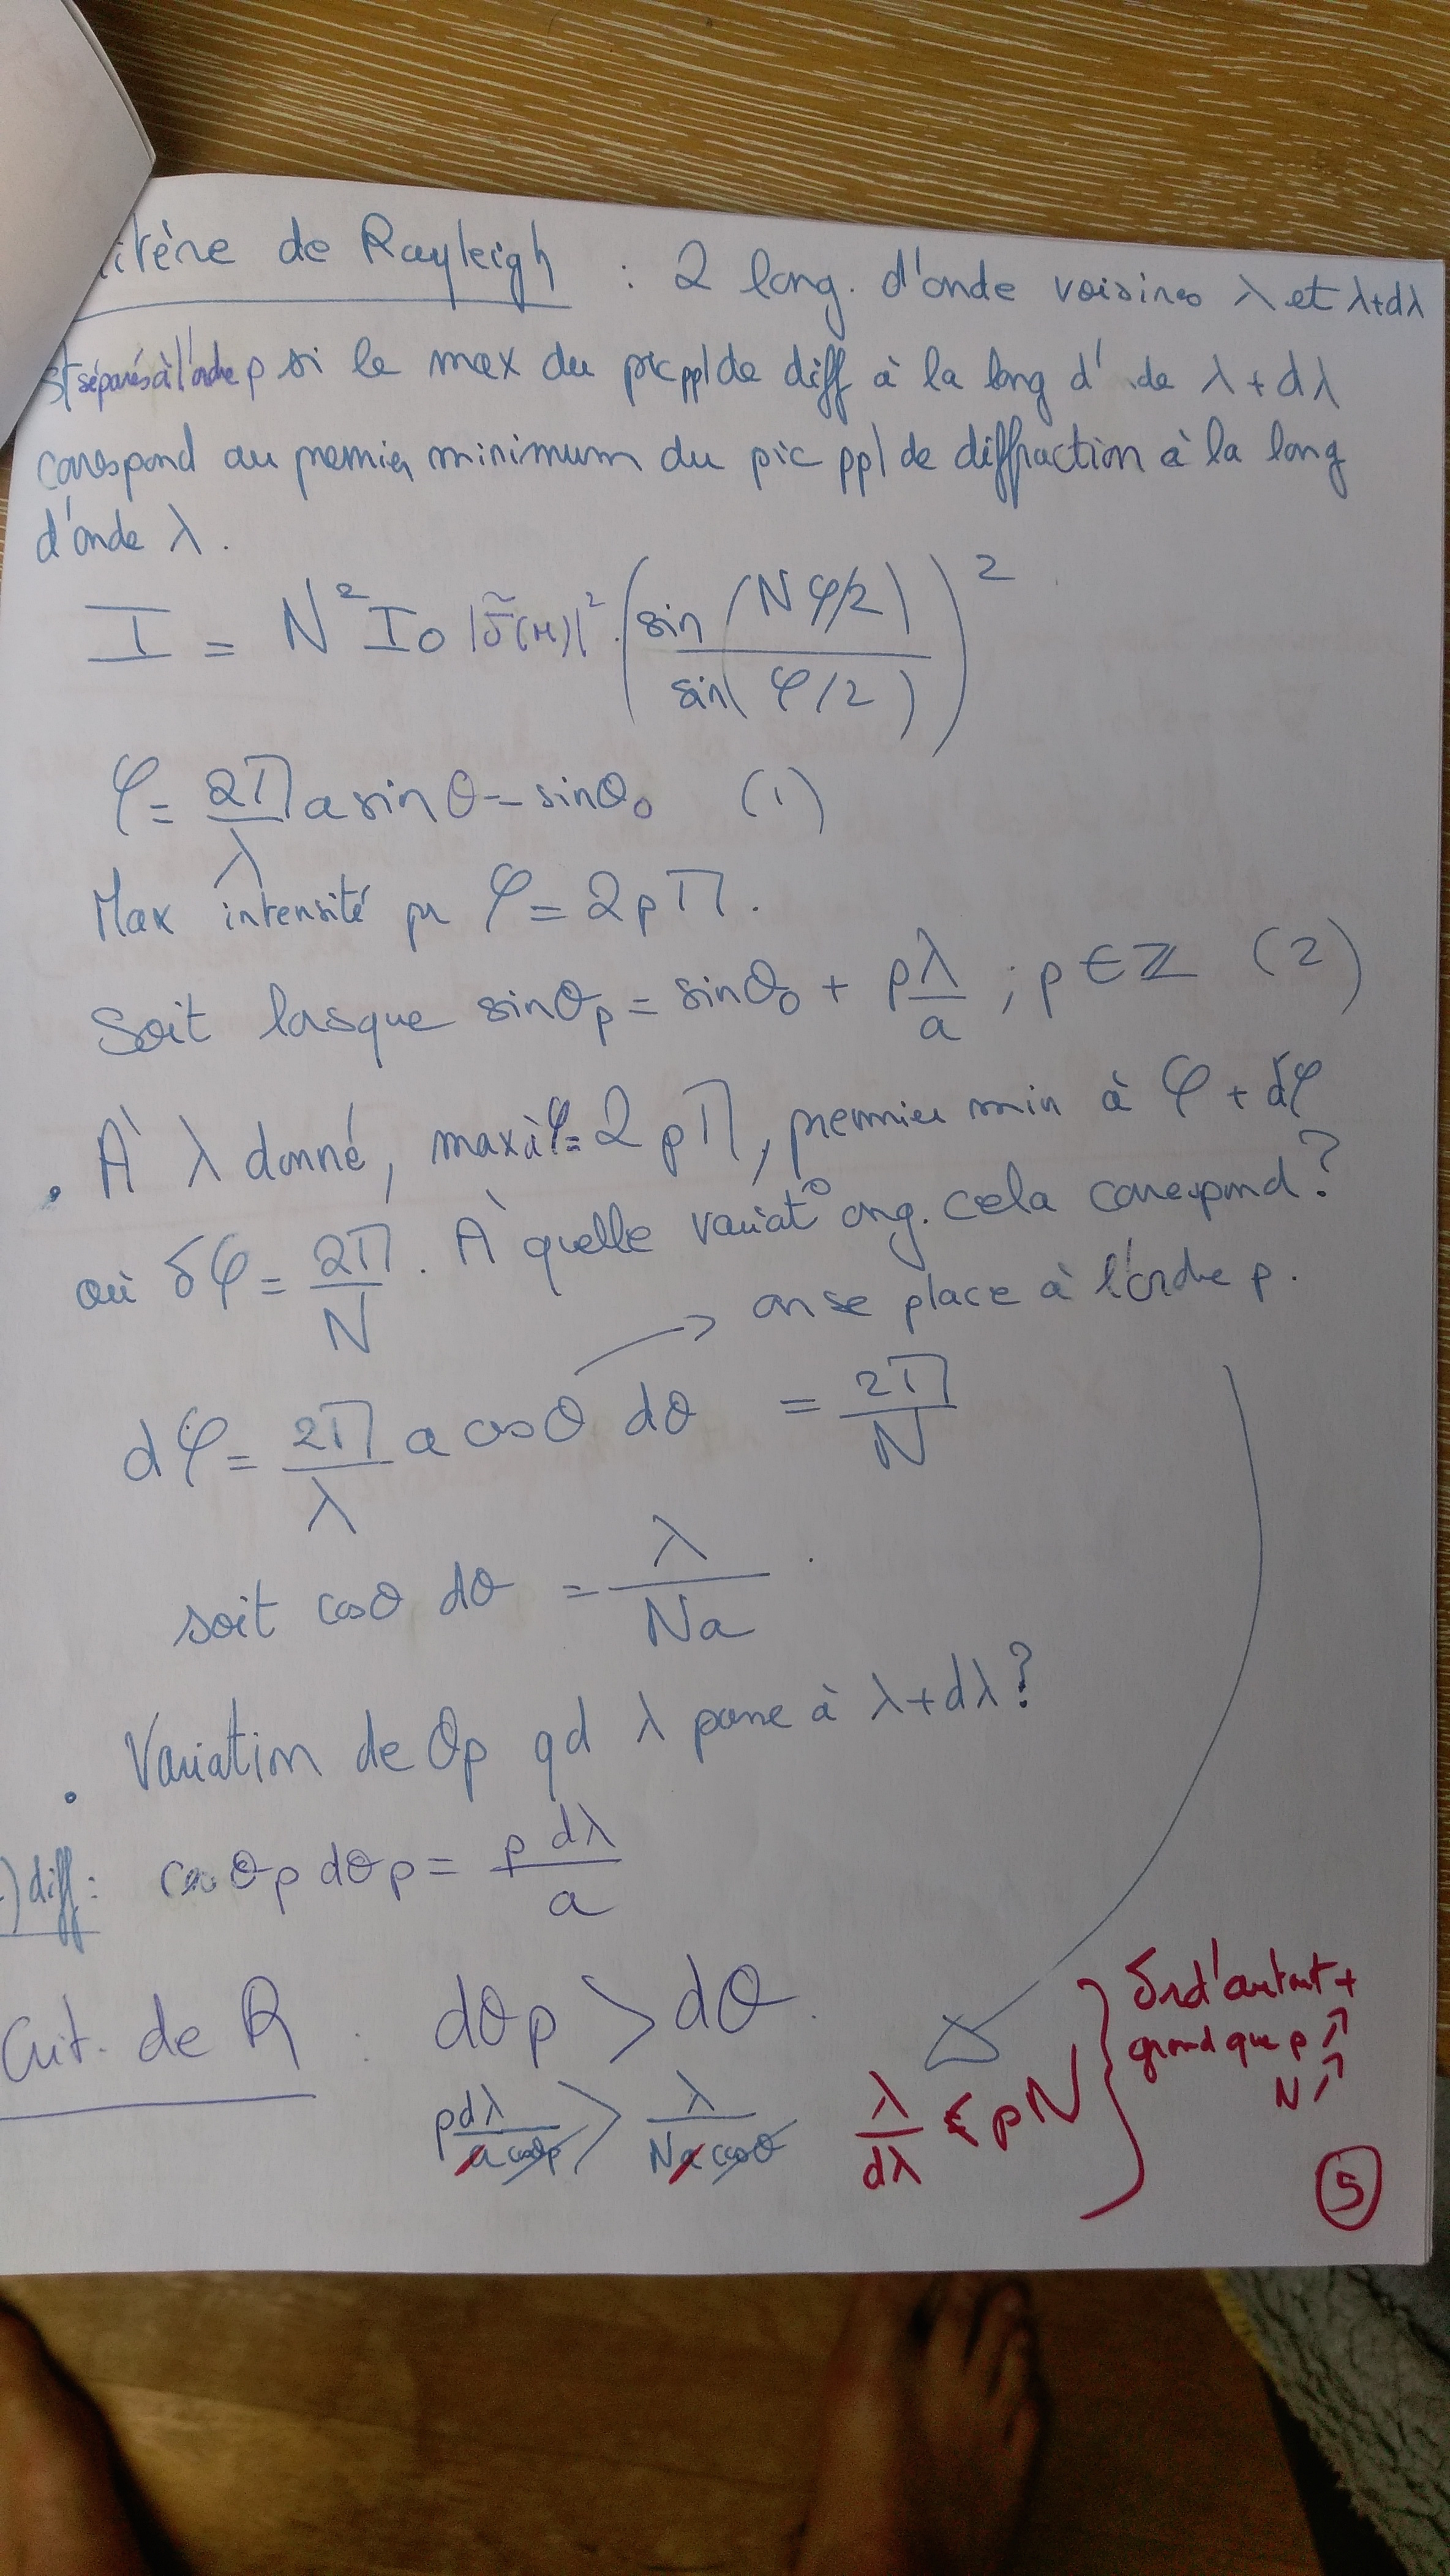 itère de Rayleigh : 2 long. d'onde voisines λ et λ+dλ
st séparés à l'ordre p si le max du pic ppl de diff à la long d' de λ+dλ
correspond au premier minimum du pic ppl de diffraction à la long
d'onde λ.
I = N² I₀ |δ̃(M)|² · (sin(Nφ/2) / sin(φ/2))²
φ = 2π/λ a sin θ – sin θ₀ (1)
Max intensité pr φ = 2pπ.
Soit lorsque sin θp = sin θ₀ + pλ/a ; p ∈ ℤ (2)
. À λ donné, max à φ = 2pπ, premier min à φ + δφ
où δφ = 2π/N. À quelle variat° ang. cela correspond?
→ on se place à l'ordre p.
dφ = 2π/λ a cos θ dθ = 2π/N
soit cos θ dθ = λ/Na.
. Variation de θp qd λ passe à λ+dλ?
) diff : cos θp dθp = p dλ/a
Crit. de R : dθp > dθ.
p dλ/a cos θp > λ/Na cos θ λ/dλ ≤ pN } δr d'autant +
grand que p ↗
N ↗
5